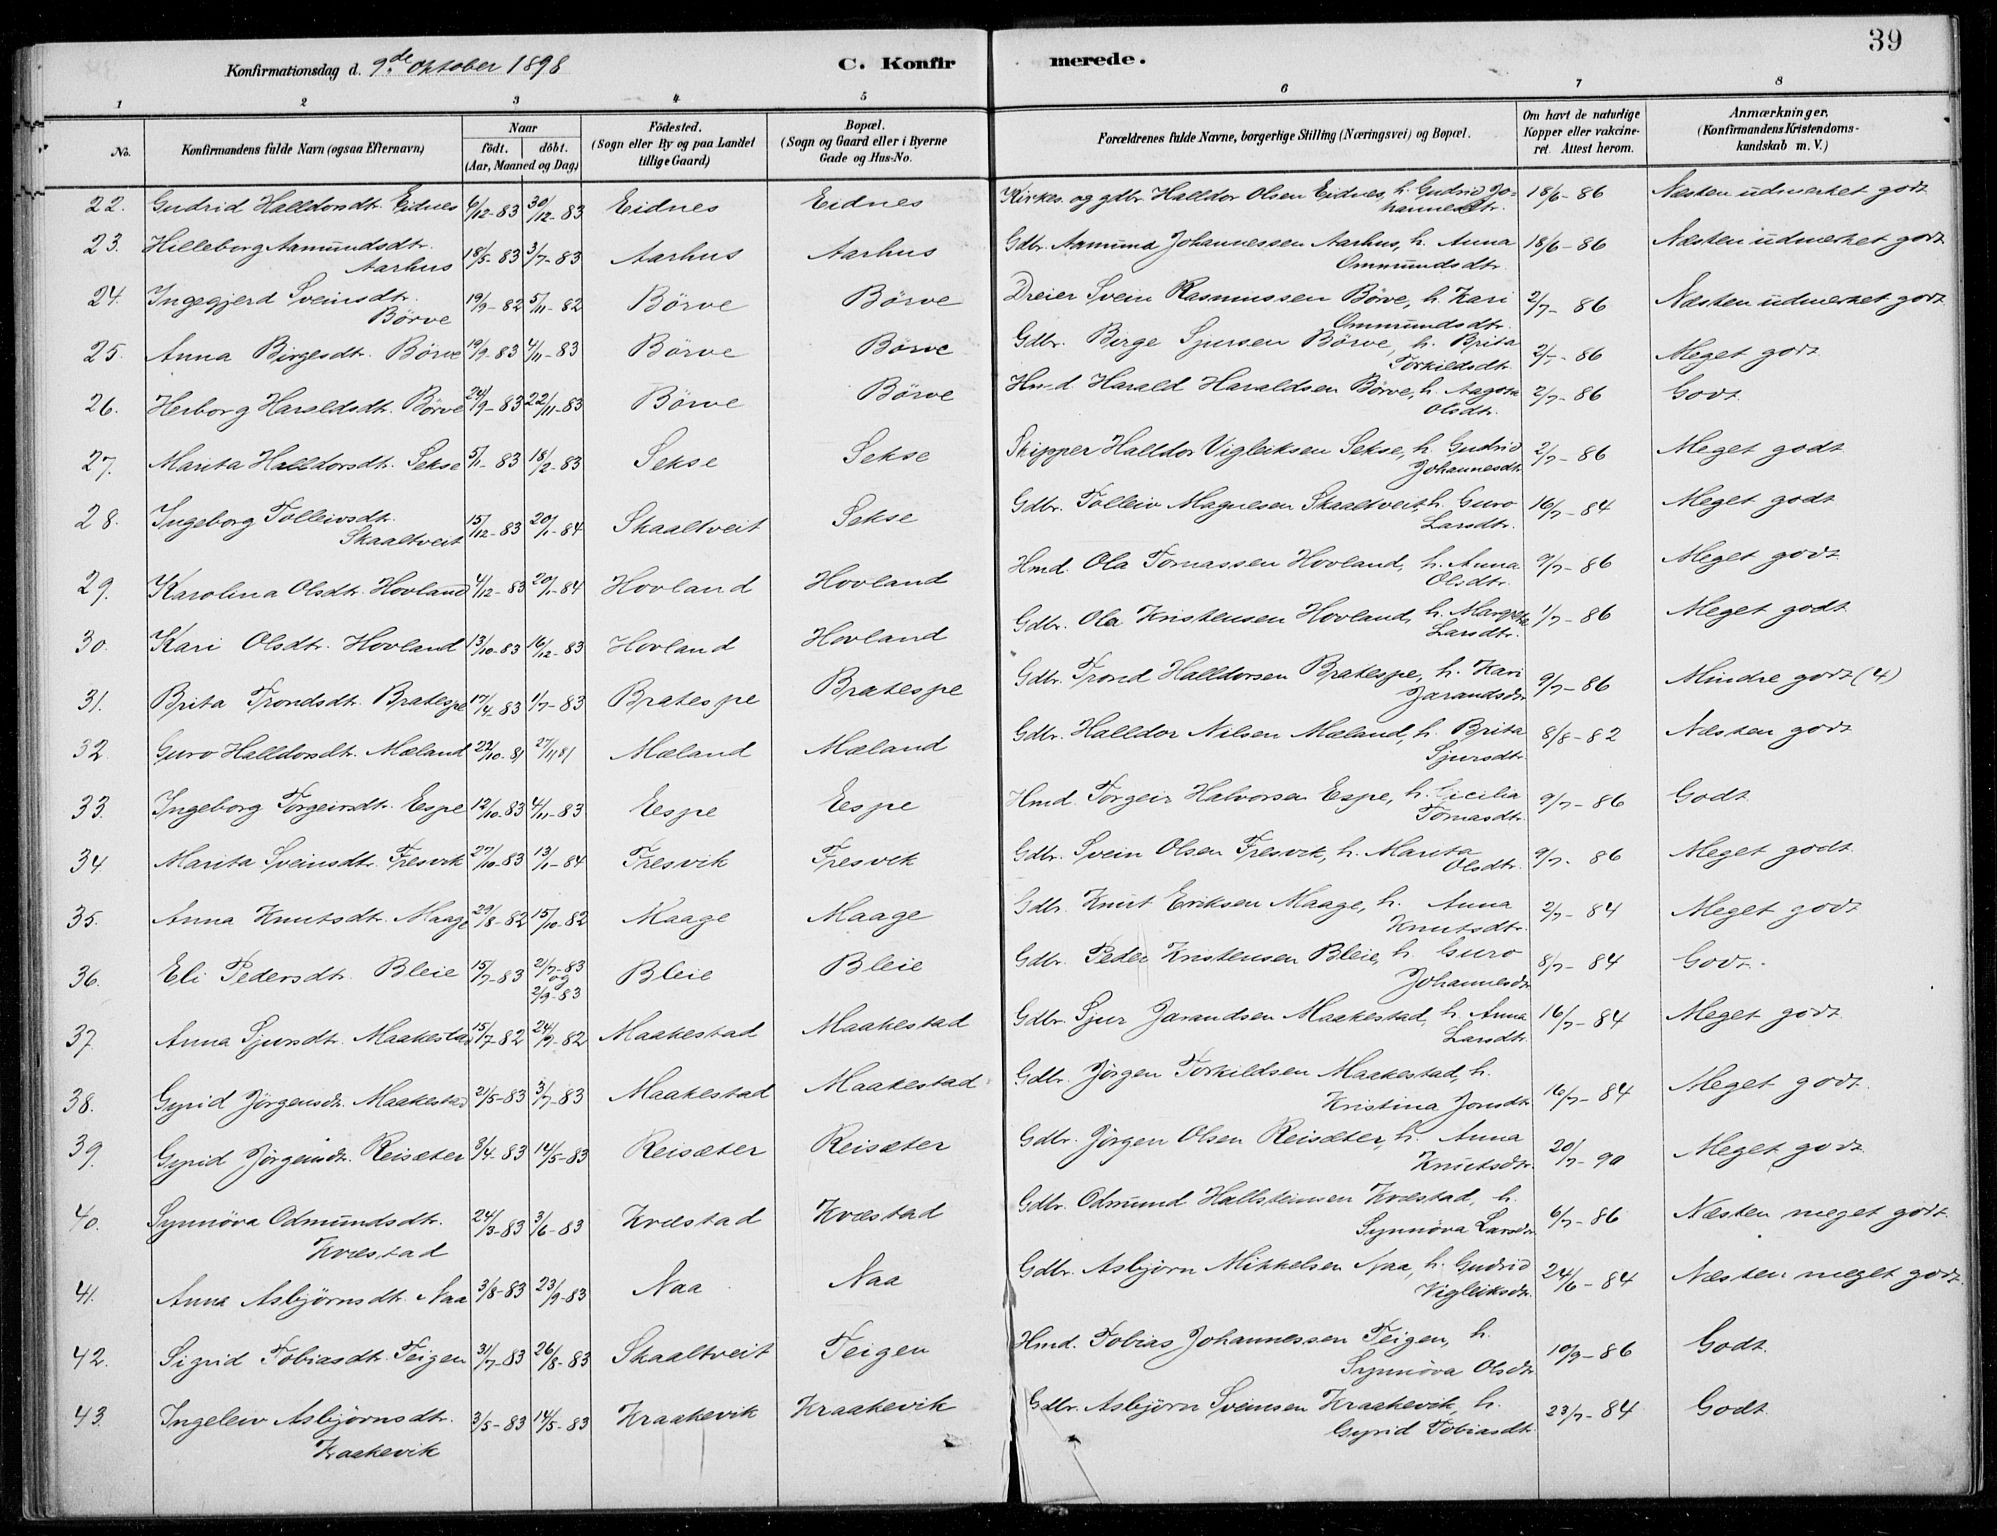 39
Konfirmationsdag d. 9de Oktober 1898 C. Konfirmerede.
1 2 3 4 5 6 7 8
No. Konfirmandens fulde Navn (ogsaa Efternavn) Naar født. døbt. (Aar, Maaned og Dag) Fødested. (Sogn eller By og paa Landet tillige Gaard) Bopæl. (Sogn og Gaard eller i Byerne Gade og Hus-No. Forældrenes fulde Navne, borgerlige Stilling (Næringsvei) og Bopæl. Om havt de naturlige Kopper eller vakcineret. Attest herom. Anmærkninger. (Konfirmandens Kristendomskundskab m. V.)
22. Gudrid Halldorsdtr. Eidnes 6/12-83 30/12-83 Eidnes Eidnes Kirkes. og gdbr. Halldor Olsen Eidnes, h. Gudrid Johannesdtr. 18/6-86 Næsten udmerket godt
23. Hilleborg Aamundsdtr. Aarhus 18/5-83 3/7-83 Aarhus Aarhus Gdbr. Aamund Johannessen Aarhus, h. Anna Ommundsdtr. 18/6-86 Næsten udmerket godt
24. Ingegjerd Sveinsdtr. Børve 19/9-82 5/11-82 Børve Børve Dreier Svein Rasmussen Børve, h. Kari Ommundsdtr. 2/7-86 Næsten udmerket godt
25. Anna Birgesdtr. Børve 19/9-83 4/11-83 Børve Børve Gdbr. Birge Sjursen Børve, h. Brita Torkildsdtr. 2/7-86 Meget godt
26. Herborg Haraldsdtr. Børve 24/9-83 22/11-83 Børve Børve Hmd Harald Haraldsen Børve, h. Aagota Olsdtr. 2/7-86 Godt
27. Marita Halldorsdtr. Sekse 5/11-83 18/2-83 Sekse Sekse Skipper Halldor Vigleiksen Sekse, h. Gudrid Johannesdtr. 2/7-86 Meget godt
28. Ingeborg Tolleivsdtr. Skaaltveit 15/12-83 20/1-84 Skaaltveit Sekse Gdbr. Tolleiv Magnesen Skaaltveit h. Guro Larsdtr. 16/7-84 Meget godt
29. Karolina Olsdtr. Hovland 4/12-83 20/1-84 Hovland Hovland Hmd. Ola Tomassen Hovland, h. Anna Olsdtr. 9/7-86 Meget godt
30. Kari Olsdtr. Hovland 13/10-83 16/12-83 Hovland Hovland Gdbr. Ola Kristensen Hovland, h. Margreta Larsdtr. 1/7-86 Meget godt
31. Brita Trondsdtr. Bratespe 17/4-83 1/7-83 Bratespe Bratespe Gdbr. Trond Halldorsen Bratespe, h. Kari Jarandsdtr. 9/7-86 Mindre godt (4)
32. Guro Halldorsdtr. Mæland 22/10-81 27/11 81 Mæland Mæland Gdbr. Halldor Nilsen Mæland, h. Brita Sjursdtr. 8/8-82 Næsten godt
33. Ingeborg Torgeirsdtr. Espe 12/10-83 4/11-83 Eespe Eespe Hmd. Torgeir Halvorsen Espe, h. Cicilia Tomasdtr. 9/7-86 Godt
34 Marita Sveinsdtr. Tresvik 27/10-83 13/1-84 Tresvik Tresvik Gdbr. Svein Olsen Tresvik, h. Marita Olsdtr. 9/7-86 Meget godt
35. Anna Knutsdtr. Maage 29/8-82 15/10-82 Maage Maage Gdbr. Knut Eriksen Maage, h. Anna Knutsdtr. 2/7-84 Meget godt
36. Eli Pedersdtr. Bleie 15/7-83 21/7-83 og 2/9-83 Bleie Bleie Gdbr. Peder Kristensen Bleie, h. Guro Johannesdtr. 8/7-84 Godt.
37. Anna Sjursdtr. Maakestad 15/7-82 24/9-82 Maakestad Maakestad Gdbr. Sjur Jarandsen Maakestad, h. Anna Larsdtr. 16/7-84 Meget godt
38. Gyrid Jørgensdtr. Maakestad 21/5-83 3/7-83 Maakestad Maakestad Gdbr. Jørgen Torkildsen Maakestad, h. Kristina Jonsdtr. 16/7-84 Meget godt
39. Gyrid Jørgensdtr. Reisæter 8/4-83 14/5-83 Reisæter Reisæter Gdbr. Jørgen Olsen Reisæter, h. Anna Knutsdtr. 20/7-90 Meget godt
40. Synnøva Odmundsdtr. Kvæstad 24/3-83 3/6-83 Kvæstad Kvæstad Gdbr. Odmund Hallsteinsen Kvæstad, h. Synnøva Larsdtr. 6/7-86 Næsten meget godt
41. Anna Asbjørnsdtr. Naa 3/8-83 23/9-83 Naa Naa Gdbr. Asbjørn Mikkelsen Naa, h. Gudrid Vigleiksdtr. 24/6-84 Næsten meget godt
42. Sigrid Tobiasdtr. Teigen 31/7-83 26/8-83 Skaaltveit Teigen Hmd. Tobias Johannessen Teigen, h. Synnøva Olsdtr. 10/9-86 Godt.
43. Ingeleiv Asbjørnsdtr. Kraakevik 3/5-83 14/5-83 Kraakevik Kraakevik Gdbr. Asbjørn Sveinsen Kraakevik, h. Gyrid Tobiasdtr. 23/7-84 Godt.